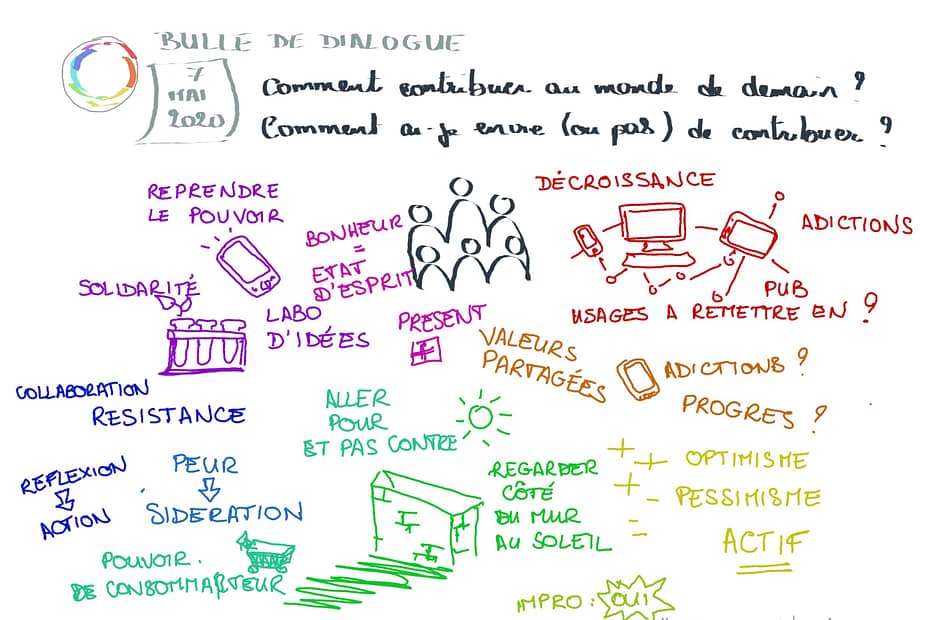 BULLE DE DIALOGUE
7
MAI
2020
Comment contribuer au monde de demain ?
Comment ai-je envie (ou pas) de contribuer ?
REPRENDRE
LE POUVOIR
BONHEUR
=
ETAT
D'ESPRIT
DÉCROISSANCE
ADICTIONS
PUB
USAGES A REMETTRE EN ?
SOLIDARITÉ
LABO
D'IDÉES
PRESENT
VALEURS
PARTAGÉES
ADICTIONS ?
PROGRES ?
COLLABORATION
RESISTANCE
ALLER
POUR
ET PAS CONTRE
REFLEXION
ACTION
PEUR
SIDERATION
REGARDER
CÔTÉ
DU MUR
AU SOLEIL
+ + OPTIMISME
+ - PESSIMISME
- - ACTIF
POUVOIR.
DE CONSOMMACTEUR
IMPRO : OUI